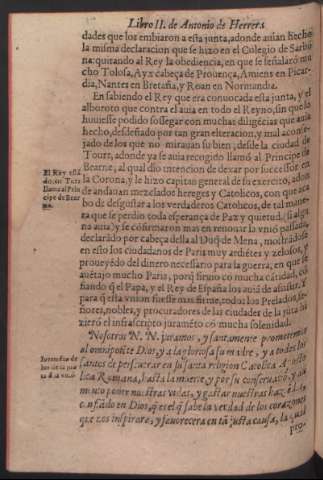 Libro II. de Antonio de Herrera
dades que los embiaron a esta junta, adonde auian hecho
la misma declaracion que se hizo en el Colegio de Sarbo
na: quitando al Rey la obediencia, en que se señalarõ mu
cho Tolosa, Ayx cabeça de Prouença, Amiens en Picar-
dia, Nantes en Bretaña, y Roan en Normandia.
En sabiendo el Rey que era conuocada esta junta, y el
alboroto que contra el auia en todo el Reyno, sin que lo
huuiesse podido sossegar con muchas diligẽcias que auia
hecho, desdeñado por tan gran alteracion, y mal aconse
jado de los que no mirauan su bien, desde la ciudad de
Tours, adonde ya se auia recogido llamó al Principe de
Bearne, al qual dio intencion de dexar por successor en
la Corona, y le hizo capitan general de su exercito, adon
de andauan mezclados hereges y Catholicos, con que aca
bò de desgustar a los verdaderos Catolicos, de tal mane-
ra que se perdio toda esperança de Paz y quietud (si algu
na auia) y se cõfirmaron mas en renouar la vniõ passada,
declarãdo por cabeça della al Duq̃ de Mena, mostrãdose
en esto los ciudadanos de Paris muy ardiẽtes y zelosos, y
proueyẽdo del dinero necessario para la guerra, en que se
auẽtajo mucho Paris, porq̃ siruio cõ mucha cãtidad, cõ
fiando q̃ el Papa, y el Rey de España los auiã de assistir. Y
para q̃ esta vnion fuesse mas firme, todos los Prelados, se-
ñores, nobles, y procuradores de las ciudades de la jũta hi
zierõ el infrascripto juramẽto cõ mucha solenidad.
Nosotros N. N. juramos, y santamente prometemos
al omnipotẽte Dios, y a la gloriosa su madre, y a todos los
santos de perseuerar en su santa religion Catolica Aposto
lica Romana, hasta la muerte, y por su conseruaciõ, y au
mento poner nuestras vidas, y gastar nuestras haziẽdas,
cõfiãdo en Dios, q̃ es el q̃ sabe la verdad de los coraçones
que nos inspirarà, y fauorecera en tã justa causa, la qual
pro-
El Rey está
do en Turs
llama al Prin
cipe de Bear
ne.
Iuramẽto de
los de la jun
ta de la vniõ.